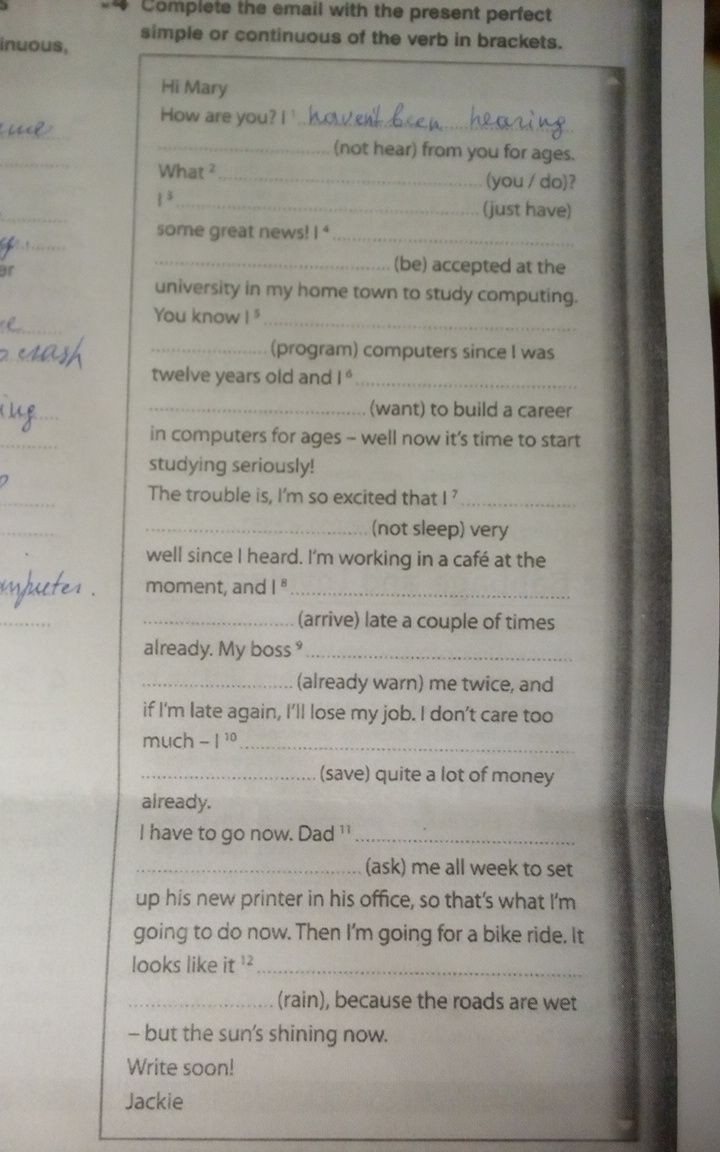 Complete the email with the present perfect
simple or continuous of the verb in brackets.
inuous,
Hi Mary
How are you? I ¹ haven't been hearing
(not hear) from you for ages.
What ² (you / do)?
I ³ (just have)
some great news! I ⁴
(be) accepted at the
university in my home town to study computing.
You know I ⁵
(program) computers since I was
twelve years old and I ⁶
(want) to build a career
in computers for ages – well now it's time to start
studying seriously!
The trouble is, I'm so excited that I ⁷
(not sleep) very
well since I heard. I'm working in a café at the
moment, and I ⁸
(arrive) late a couple of times
already. My boss ⁹
(already warn) me twice, and
if I'm late again, I'll lose my job. I don't care too
much – I ¹⁰
(save) quite a lot of money
already.
I have to go now. Dad ¹¹
(ask) me all week to set
up his new printer in his office, so that's what I'm
going to do now. Then I'm going for a bike ride. It
looks like it ¹²
(rain), because the roads are wet
– but the sun's shining now.
Write soon!
Jackie
er
crash
ing